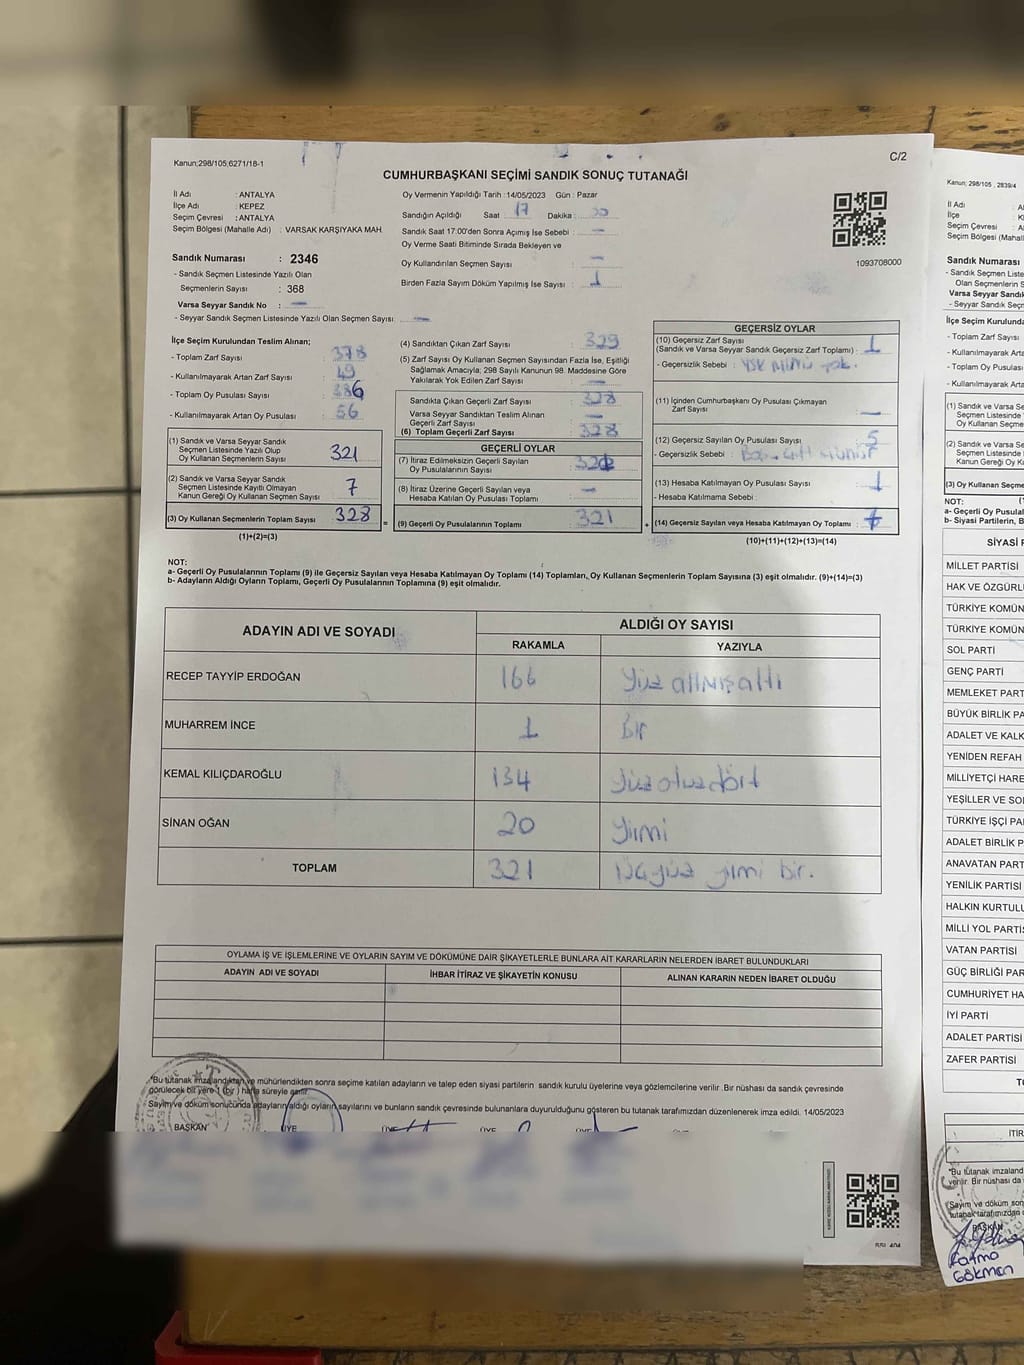 Kanun;298/105;6271/18-1
C/2
CUMHURBAŞKANI SEÇİMİ SANDIK SONUÇ TUTANAĞI
İl Adı : ANTALYA
İlçe Adı : KEPEZ
Seçim Çevresi : ANTALYA
Seçim Bölgesi (Mahalle Adı) : VARSAK KARŞIYAKA MAH.
Sandık Numarası : 2346
- Sandık Seçmen Listesinde Yazılı Olan
Seçmenlerin Sayısı : 368
Varsa Seyyar Sandık No : —
- Seyyar Sandık Seçmen Listesinde Yazılı Olan Seçmen Sayısı: —
Oy Vermenin Yapıldığı Tarih : 14/05/2023 Gün : Pazar
Sandığın Açıldığı Saat : 17 Dakika :
Sandık Saat 17:00'den Sonra Açımış İse Sebebi : —
Oy Verme Saati Bitiminde Sırada Bekleyen ve
Oy Kullandırılan Seçmen Sayısı : —
Birden Fazla Sayım Döküm Yapılmış İse Sayısı : 1
1093708000
İlçe Seçim Kurulundan Teslim Alınan;
- Toplam Zarf Sayısı : 378
- Kullanılmayarak Artan Zarf Sayısı : 49
- Toplam Oy Pusulası Sayısı : 386
- Kullanılmayarak Artan Oy Pusulası : 56
(1) Sandık ve Varsa Seyyar Sandık
Seçmen Listesinde Yazılı Olup
Oy Kullanan Seçmenlerin Sayısı : 321
(2) Sandık ve Varsa Seyyar Sandık
Seçmen Listesinde Kayıtlı Olmayan
Kanun Gereği Oy Kullanan Seçmen Sayısı : 7
(3) Oy Kullanan Seçmenlerin Toplam Sayısı : 328
(1)+(2)=(3)
(4) Sandıktan Çıkan Zarf Sayısı : 329
(5) Zarf Sayısı Oy Kullanan Seçmen Sayısından Fazla İse, Eşitliği
Sağlamak Amacıyla, 298 Sayılı Kanunun 98. Maddesine Göre
Yakılarak Yok Edilen Zarf Sayısı : —
Sandıkta Çıkan Geçerli Zarf Sayısı : 328
Varsa Seyyar Sandıktan Teslim Alınan
Geçerli Zarf Sayısı : —
(6) Toplam Geçerli Zarf Sayısı : 328
GEÇERLİ OYLAR
(7) İtiraz Edilmeksizin Geçerli Sayılan
Oy Pusulalarının Sayısı :
(8) İtiraz Üzerine Geçerli Sayılan veya
Hesaba Katılan Oy Pusulası Toplamı : —
= (9) Geçerli Oy Pusulalarının Toplamı : 321
GEÇERSİZ OYLAR
(10) Geçersiz Zarf Sayısı
(Sandık ve Varsa Seyyar Sandık Geçersiz Zarf Toplamı) : 1
- Geçersizlik Sebebi : YSK mührü yok.
(11) İçinden Cumhurbaşkanı Oy Pusulası Çıkmayan
Zarf Sayısı : —
(12) Geçersiz Sayılan Oy Pusulası Sayısı : 5
- Geçersizlik Sebebi :
(13) Hesaba Katılmayan Oy Pusulası Sayısı : 1
- Hesaba Katılmama Sebebi :
+ (14) Geçersiz Sayılan veya Hesaba Katılmayan Oy Toplamı :
(10)+(11)+(12)+(13)=(14)
NOT:
a- Geçerli Oy Pusulalarının Toplamı (9) ile Geçersiz Sayılan veya Hesaba Katılmayan Oy Toplamı (14) Toplamları, Oy Kullanan Seçmenlerin Toplam Sayısına (3) eşit olmalıdır. (9)+(14)=(3)
b- Adayların Aldığı Oyların Toplamı, Geçerli Oy Pusulalarının Toplamına (9) eşit olmalıdır.
ADAYIN ADI VE SOYADI ALDIĞI OY SAYISI
RAKAMLA YAZIYLA
RECEP TAYYİP ERDOĞAN 166 Yüz altmışaltı
MUHARREM İNCE 1 Bir
KEMAL KILIÇDAROĞLU 134 Yüzotuzdört
SİNAN OĞAN 20 Yirmi
TOPLAM 321 Üçyüz yirmi bir.
OYLAMA İŞ VE İŞLEMLERİNE VE OYLARIN SAYIM VE DÖKÜMÜNE DAİR ŞİKAYETLERLE BUNLARA AİT KARARLARIN NELERDEN İBARET BULUNDUKLARI
ADAYIN ADI VE SOYADI İHBAR İTİRAZ VE ŞİKAYETİN KONUSU ALINAN KARARIN NEDEN İBARET OLDUĞU
"Bu tutanak imzalandıktan ve mühürlendikten sonra seçime katılan adayların ve talep eden siyasi partilerin sandık kurulu üyelerine veya gözlemcilerine verilir. Bir nüshası da sandık çevresinde
görülecek bir yere 1 (bir) hafta süreyle asılır.
Sayım ve döküm sonucunda adayların aldığı oyların sayılarını ve bunların sandık çevresinde bulunanlara duyurulduğunu gösteren bu tutanak tarafımızdan düzenlenerek imza edildi. 14/05/2023
BAŞKAN ÜYE ÜYE ÜYE ÜYE
Kanun; 298/105 , 2839/4
İl Adı
İlçe
Seçim Çevresi
Seçim Bölgesi
Sandık Numarası
- Sandık Seçmen
Olan Seçmenlerin
Varsa Seyyar Sandık
- Seyyar Sandık Seç
İlçe Seçim Kurulund
- Toplam Zarf Sayısı
- Kullanılmayarak Artan
- Toplam Oy Pusulası
- Kullanılmayarak Artan
(1) Sandık ve Varsa
Seçmen Listesinde
Oy Kullanan Seçm
(2) Sandık ve Varsa
Seçmen Listesinde
Kanun Gereği Oy K
(3) Oy Kullanan Seçm
NOT:
a- Geçerli Oy Pusulal
b- Siyasi Partilerin, B
SİYASİ P
MİLLET PARTİSİ
HAK VE ÖZGÜRL
TÜRKİYE KOMÜN
TÜRKİYE KOMÜN
SOL PARTİ
GENÇ PARTİ
MEMLEKET PART
BÜYÜK BİRLİK PA
ADALET VE KALK
YENİDEN REFAH
MİLLİYETÇİ HARE
YEŞİLLER VE SO
TÜRKİYE İŞÇİ PA
ADALET BİRLİK P
ANAVATAN PART
YENİLİK PARTİSİ
HALKIN KURTULU
MİLLİ YOL PARTİS
VATAN PARTİSİ
GÜÇ BİRLİĞİ PAR
CUMHURİYET HA
İYİ PARTİ
ADALET PARTİSİ
ZAFER PARTİSİ
TO
İTİR
"Bu tutanak imzaland
verilir. Bir nüshası da
Sayım ve döküm son
tutanak tarafımızdan
BAŞKAN
Fatma
GÖKMEN